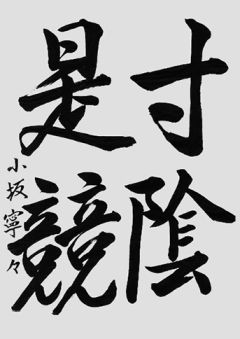 寸陰
是競
小坂寧々